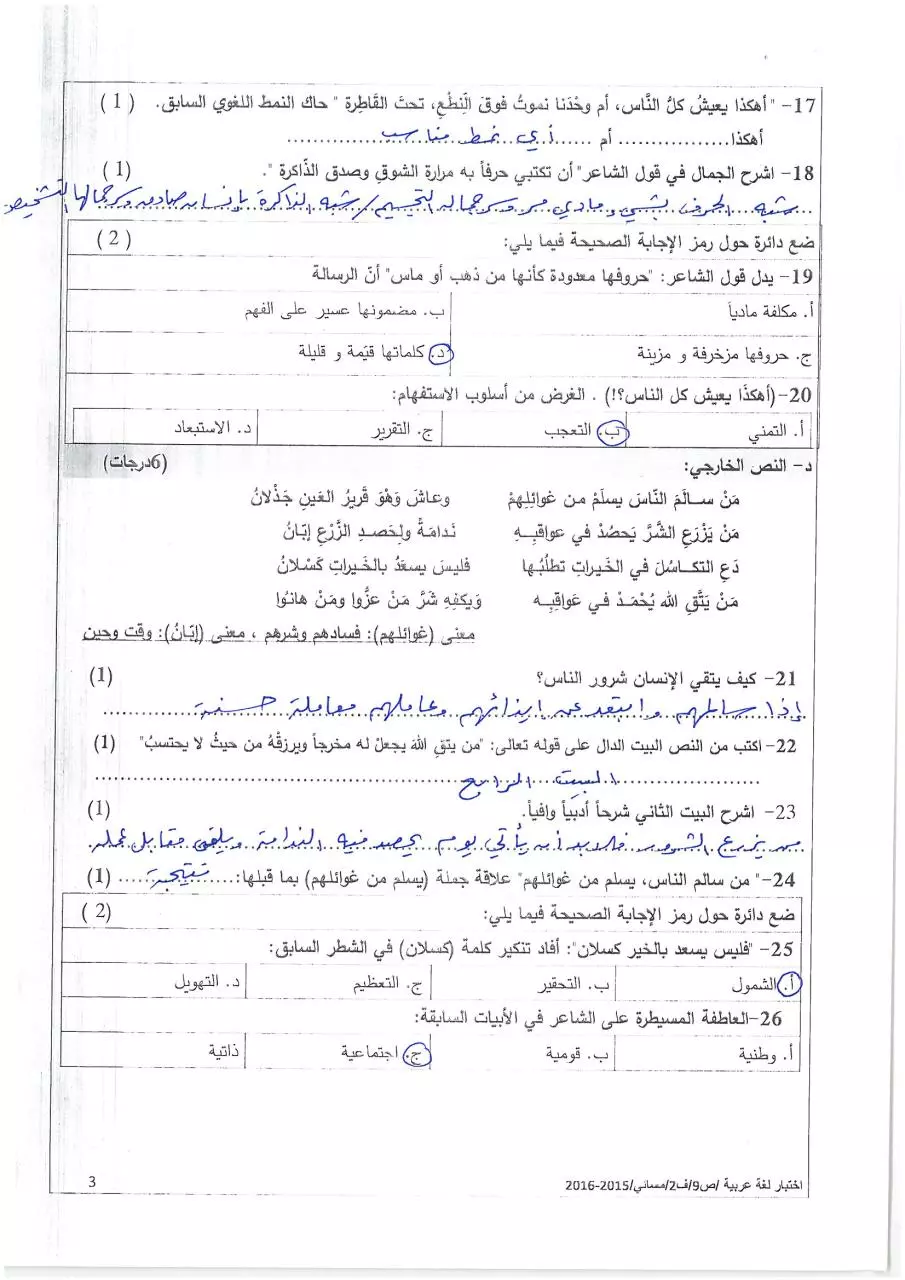 17- "أهكذا يعيشُ كلُ النَّاس، أم وحْدَنا نموتُ فوقَ النِطْعِ، تحتَ القَاطِرة " حاك النمط اللغوي السابق. ( 1 )
أهكذا................. أم ...... أي نمط مناسب ......
18- اشرح الجمال في قول الشاعر" أن تكتبي حرفاً به مرارة الشوق وصدق الذّاكرة ". (1 )
شبه الحرف بشيء مادي مر وسر جماله التجسيم / شبه الذاكرة بإنسان صادق وسر جمالها التشخيص
ضع دائرة حول رمز الإجابة الصحيحة فيما يلي: ( 2 )
19- يدل قول الشاعر: "حروفها معدودة كأنها من ذهب أو ماس" أنّ الرسالة
أ. مكلفة مادياً ب. مضمونها عسير على الفهم
ج. حروفها مزخرفة و مزينة د. كلماتها قيّمة و قليلة
20-(أهكذا يعيش كل الناس؟!) . الغرض من أسلوب الاستفهام:
أ. التمني ب. التعجب ج. التقرير د. الاستبعاد
د- النص الخارجي: (6درجات)
مَنْ سـالَمَ النّاسَ يسلَمْ مـن غوائلِهِمْ وعاشَ وَهْوَ قَريرُ العَينِ جَذْلانُ
مَنْ يَزْرَعِ الشَّرَّ يَحصُدْ في عواقبِـهِ نَدامَةً ولِحَصدِ الزَّرْعِ إبّانُ
دَعِ التكـاسُلَ في الخَيراتِ تطلُبُها فليسَ يسعَدُ بالخَيراتِ كَسْلانُ
مَنْ يَتَّقِ الله يُحْمَدْ في عَواقبِـه وَيكفِهِ شَرَّ مَنْ عزُّوا ومَنْ هانُوا
معنى (غوائلهم): فسادهم وشرهم ، معنى (إبّانُ): وقت وحين
21- كيف يتقي الإنسان شرور الناس؟ (1)
إذا سالمهم وابتعد عن إيذائهم وعاملهم معاملة حسنة
22- اكتب من النص البيت الدال على قوله تعالى: "من يتقِ اللهَ يجعلْ له مخرجاً ويرزقْهُ من حيثُ لا يحتسبُ" (1)
البيت الرابع
23- اشرح البيت الثاني شرحاً أدبياً وافياً. (1)
من يزرع الشر فلا بد أن يأتي يوم يحصد فيه الندامة ويلقى مقابل عمله
24-" من سالم الناس، يسلم من غوائلهم" علاقة جملة (يسلم من غوائلهم) بما قبلها:.... نتيجة ..... (1)
ضع دائرة حول رمز الإجابة الصحيحة فيما يلي: ( 2 )
25- "فليس يسعد بالخير كسلان": أفاد تنكير كلمة (كسلان) في الشطر السابق:
أ. الشمول ب. التحقير ج. التعظيم د. التهويل
26-العاطفة المسيطرة على الشاعر في الأبيات السابقة:
أ. وطنية ب. قومية ج. اجتماعية ذاتية
اختبار لغة عربية /ص9/ف2/مسائي/2015-2016 3